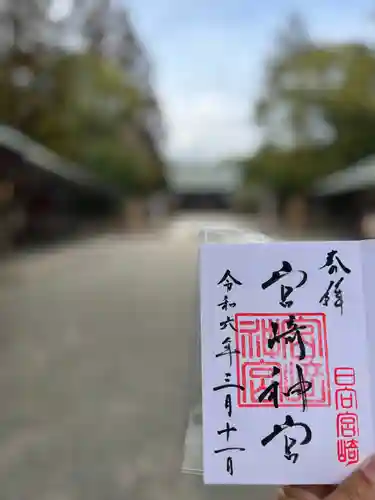 奉拝
宮崎神宮
令和六年三月十一日
宮崎神宮
日向宮崎